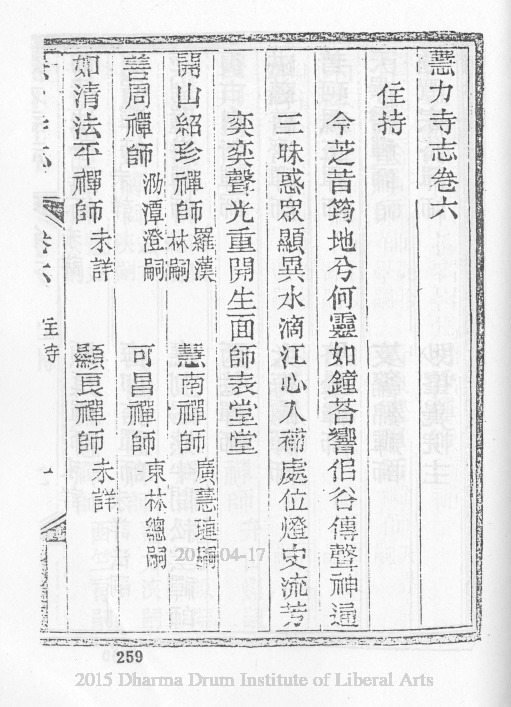 慧力寺志卷六
住持
今芝昔筠地兮何靈如鐘荅響侣谷傳聲神通
三昧惑眾顯異水滴江心入補處位燈史流芳
奕奕聲光重開生面師表堂堂
開山紹珍禪師羅漢林嗣 慧南禪師廣慧璉嗣
善周禪師泐潭澄嗣 可昌禪師東林總嗣
如清法平禪師未詳 顯良禪師未詳
卷六 住持 一
2015-04-17
259
2015 Dharma Drum Institute of Liberal Arts